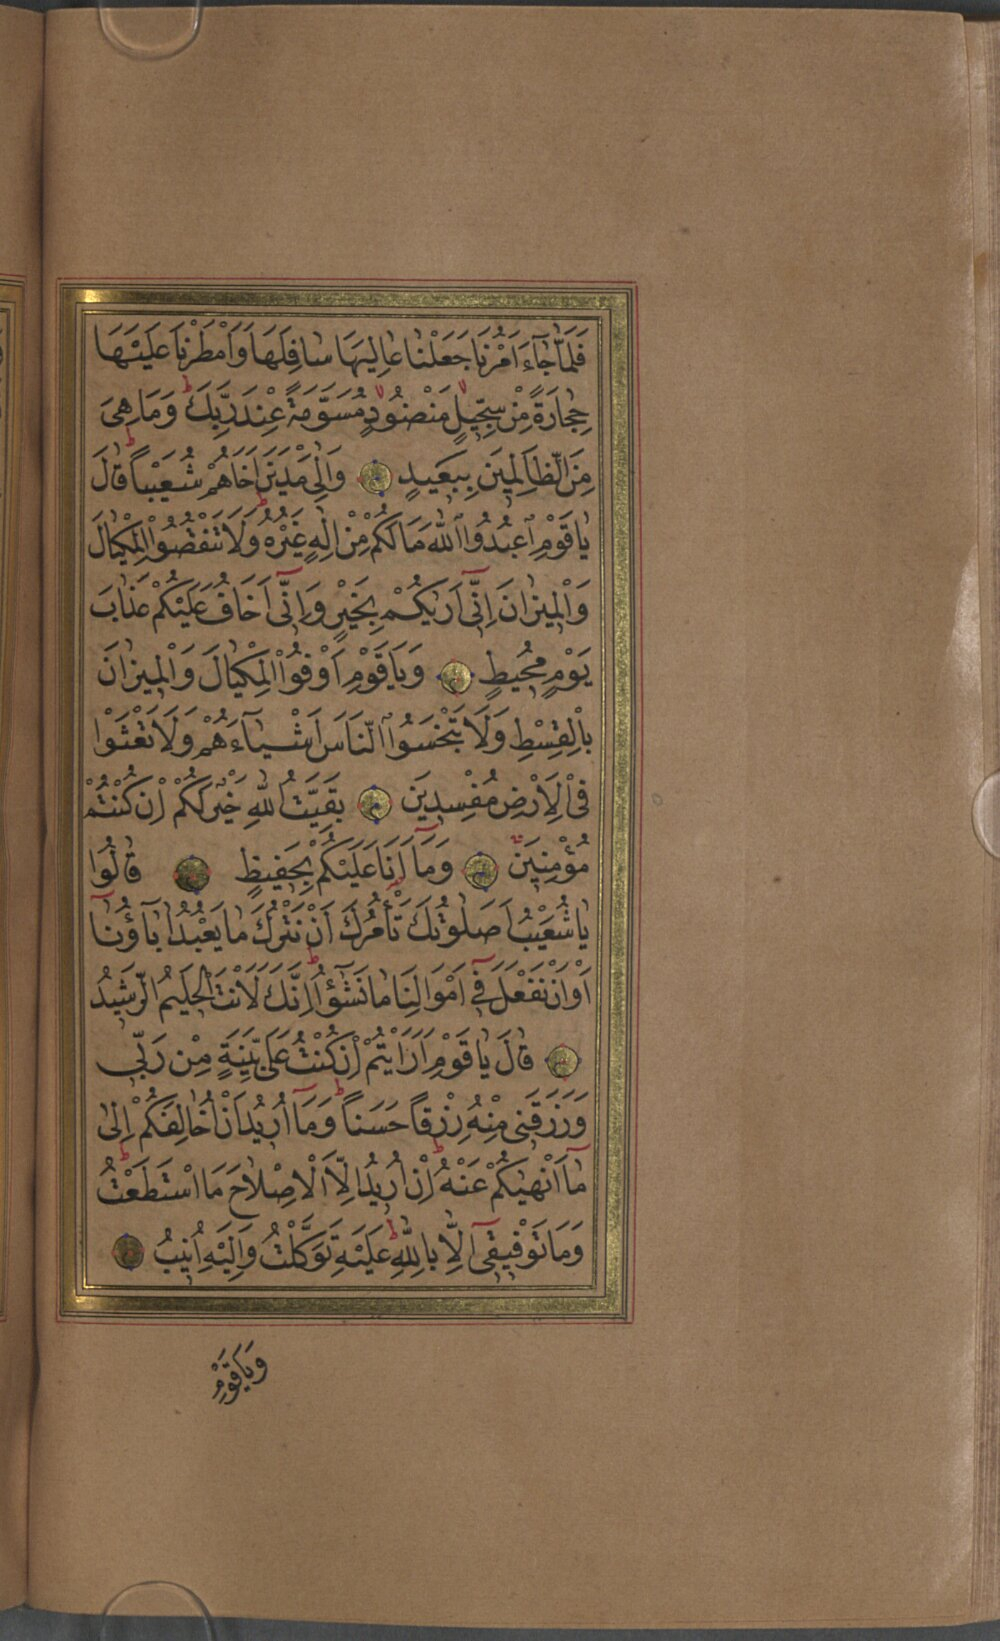 فَلَمَّا جَاءَ اَمْرُنَا جَعَلْنَا عَالِيَهَا سَافِلَهَا وَاَمْطَرْنَا عَلَيْهَا
حِجَارَةً مِنْ سِجِّيلٍ مَنْضُودٍ مُسَوَّمَةً عِنْدَ رَبِّكَ وَمَا هِيَ
مِنَ الظَّالِمِينَ بِبَعِيدٍ وَاِلٰى مَدْيَنَ اَخَاهُمْ شُعَيْبًا قَالَ
يَا قَوْمِ اعْبُدُوا اللّٰهَ مَا لَكُمْ مِنْ اِلٰهٍ غَيْرُهُ وَلَا تَنْقُصُوا الْمِكْيَالَ
وَالْمِيزَانَ اِنِّي اَرٰيكُمْ بِخَيْرٍ وَاِنِّي اَخَافُ عَلَيْكُمْ عَذَابَ
يَوْمٍ مُحِيطٍ وَيَا قَوْمِ اَوْفُوا الْمِكْيَالَ وَالْمِيزَانَ
بِالْقِسْطِ وَلَا تَبْخَسُوا النَّاسَ اَشْيَاءَهُمْ وَلَا تَعْثَوْا
فِي الْاَرْضِ مُفْسِدِينَ بَقِيَّتُ اللّٰهِ خَيْرٌ لَكُمْ اِنْ كُنْتُمْ
مُؤْمِنِينَ وَمَا اَنَا عَلَيْكُمْ بِحَفِيظٍ قَالُوا
يَا شُعَيْبُ اَصَلٰوتُكَ تَأْمُرُكَ اَنْ نَتْرُكَ مَا يَعْبُدُ اٰبَاؤُنَا
اَوْ اَنْ نَفْعَلَ فِي اَمْوَالِنَا مَا نَشٰؤُا اِنَّكَ لَاَنْتَ الْحَلِيمُ الرَّشِيدُ
قَالَ يَا قَوْمِ اَرَاَيْتُمْ اِنْ كُنْتُ عَلٰى بَيِّنَةٍ مِنْ رَبِّي
وَرَزَقَنِي مِنْهُ رِزْقًا حَسَنًا وَمَا اُرِيدُ اَنْ اُخَالِفَكُمْ اِلٰى
مَا اَنْهٰيكُمْ عَنْهُ اِنْ اُرِيدُ اِلَّا الْاِصْلَاحَ مَا اسْتَطَعْتُ
وَمَا تَوْفِيقِي اِلَّا بِاللّٰهِ عَلَيْهِ تَوَكَّلْتُ وَاِلَيْهِ اُنِيبُ
وَيَا قَوْمِ